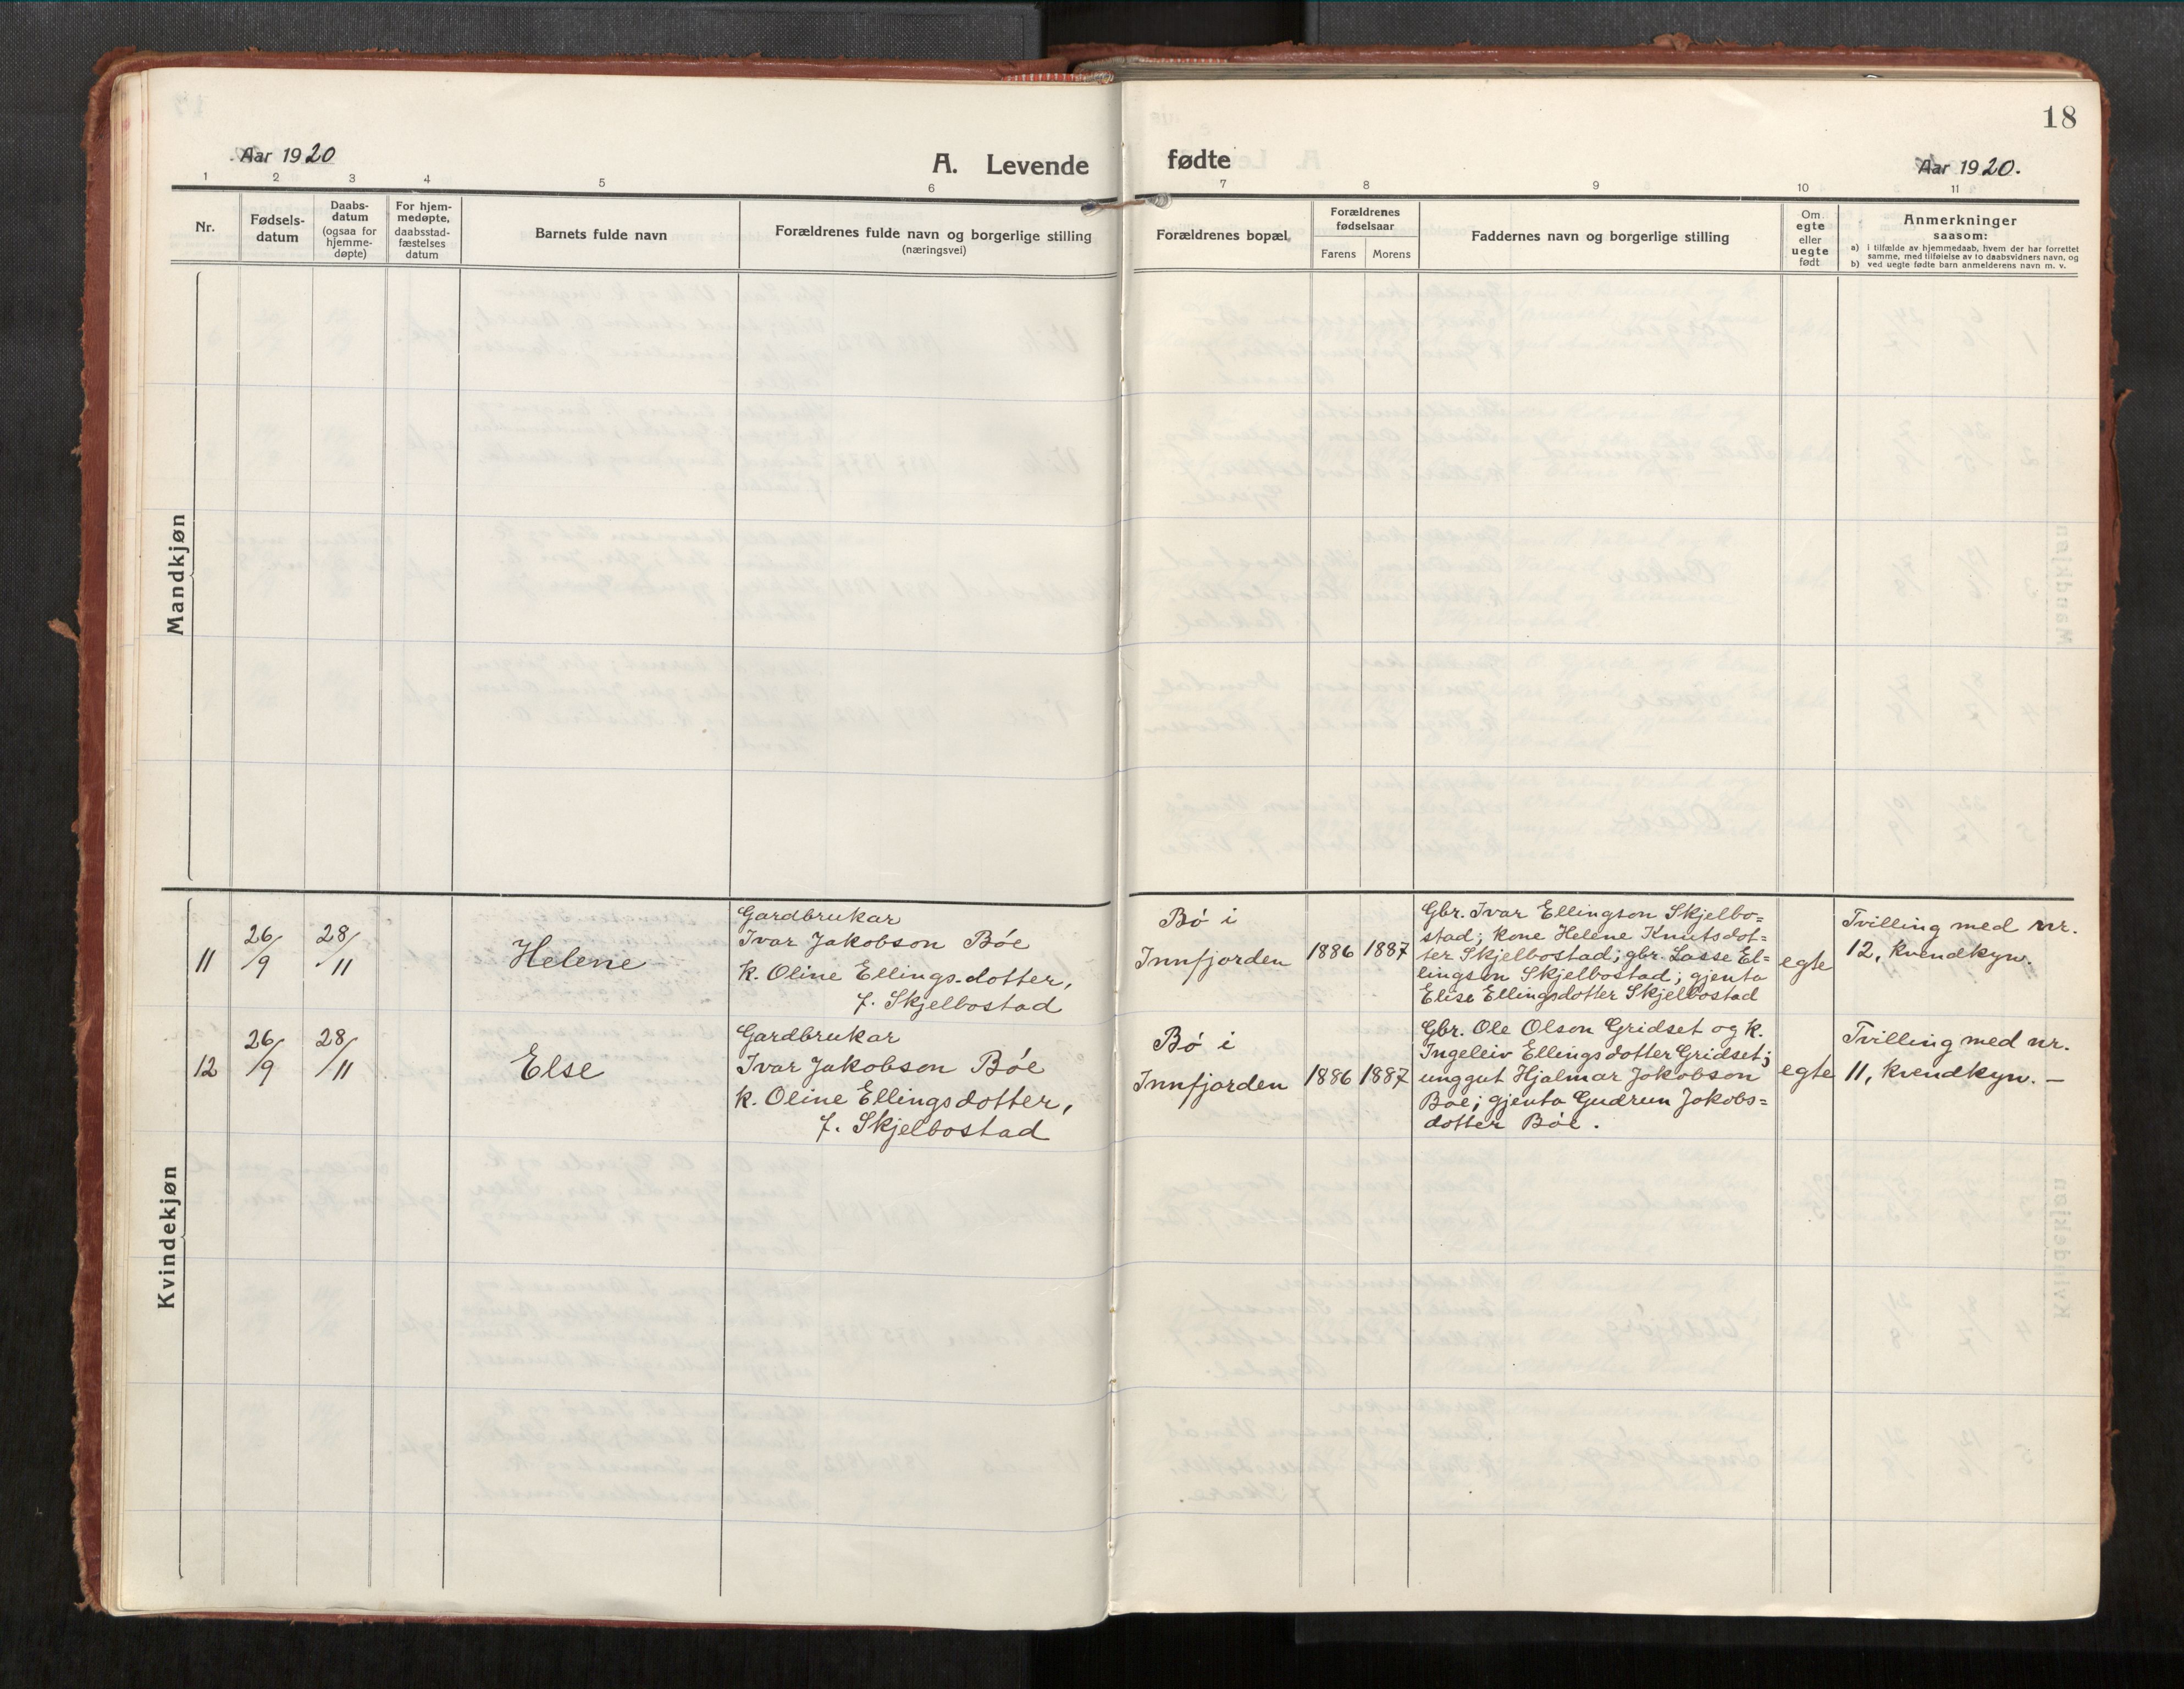 18
Aar 1920
A. Levende fødte
Aar 1920.
1 2 3 4 5 6 7 8 9 10 11
Nr.
Fødsels-
datum
Daabs-
datum
(ogsaa for
hjemme-
døpte)
For hjem-
medøpte,
daabsstad-
fæstelses
datum
Barnets fulde navn
Forældrenes fulde navn og borgerlige stilling
(næringsvei)
Forældrenes bopæl
Forældrenes
fødselsaar
Farens
Morens
Faddernes navn og borgerlige stilling
Om
egte
eller
uegte
født
Anmerkninger
saasom:
a) i tilfælde av hjemmedaab, hvem der har forrettet
samme, med tilføielse av to daabsvidners navn, og
b) ved uegte fødte barn anmelderens navn m. v.
Mandkjøn
Kvindekjøn
11
26/9
28/11
Helene
Gardbrukar
Ivar Jakobson Bøe
k. Oline Ellings-dotter,
f. Skjelbostad
Bø i
Innfjorden
1886
1887
Gbr. Ivar Ellingson Skjelbo=
stad; kone Helene Knutsdot=
ter Skjelbostad; gbr. Lasse El=
lingson Skjelbostad; gjenta
Elise Ellingsdotter Skjelbostad
egte
Tvilling med nr.
12, kvendkyn.
12
26/9
28/11
Else
Gardbrukar
Ivar Jakobson Bøe
k. Oline Ellingsdotter,
f. Skjelbostad
Bø i
Innfjorden
1886
1887
Gbr. Ole Olson Gridset og k.
Ingeleiv Ellingsdotter Gridset;
unggut Hjalmar Jakobson
Bøe; gjenta Gudrun Jakobs=
dotter Bøe.
egte
Tvilling med nr.
11, kvendkyn. —